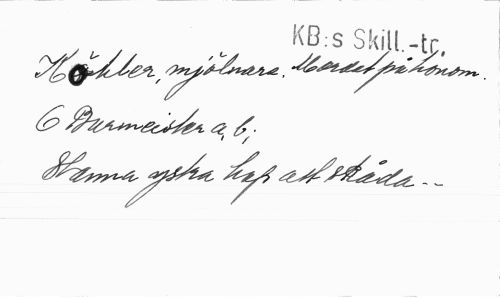 KB:s Skill.-tr.
Köhler, mjölnare. Mordet på honom.
6 Burmeister a, b;
Stanna ystra hop att skåda --